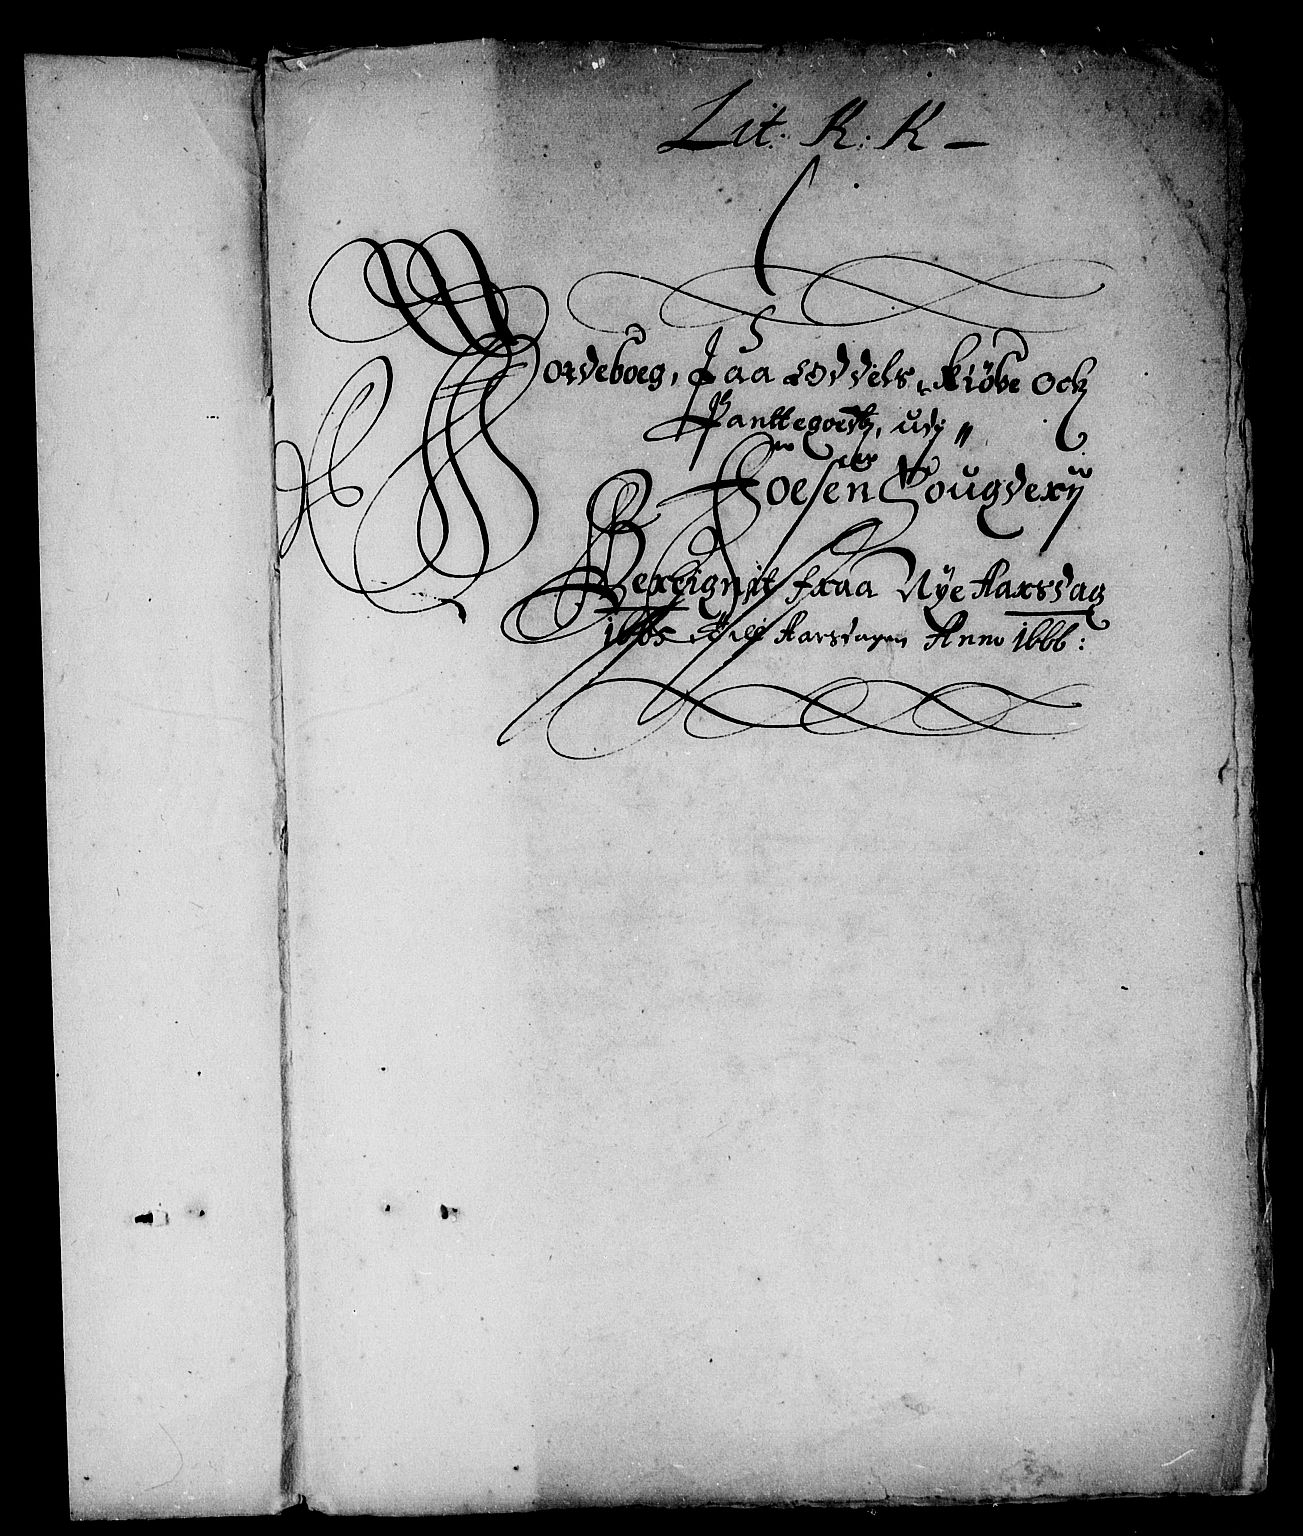 Lit: K: K –
Jordeboeg, Paa Oddels, Kiöbe Ock
Panttegoedtz, udj "
Foesen Fougderij
Bereignit fraa Nye Aarsdag
1665 Till Aarsdagen Anno 1666: